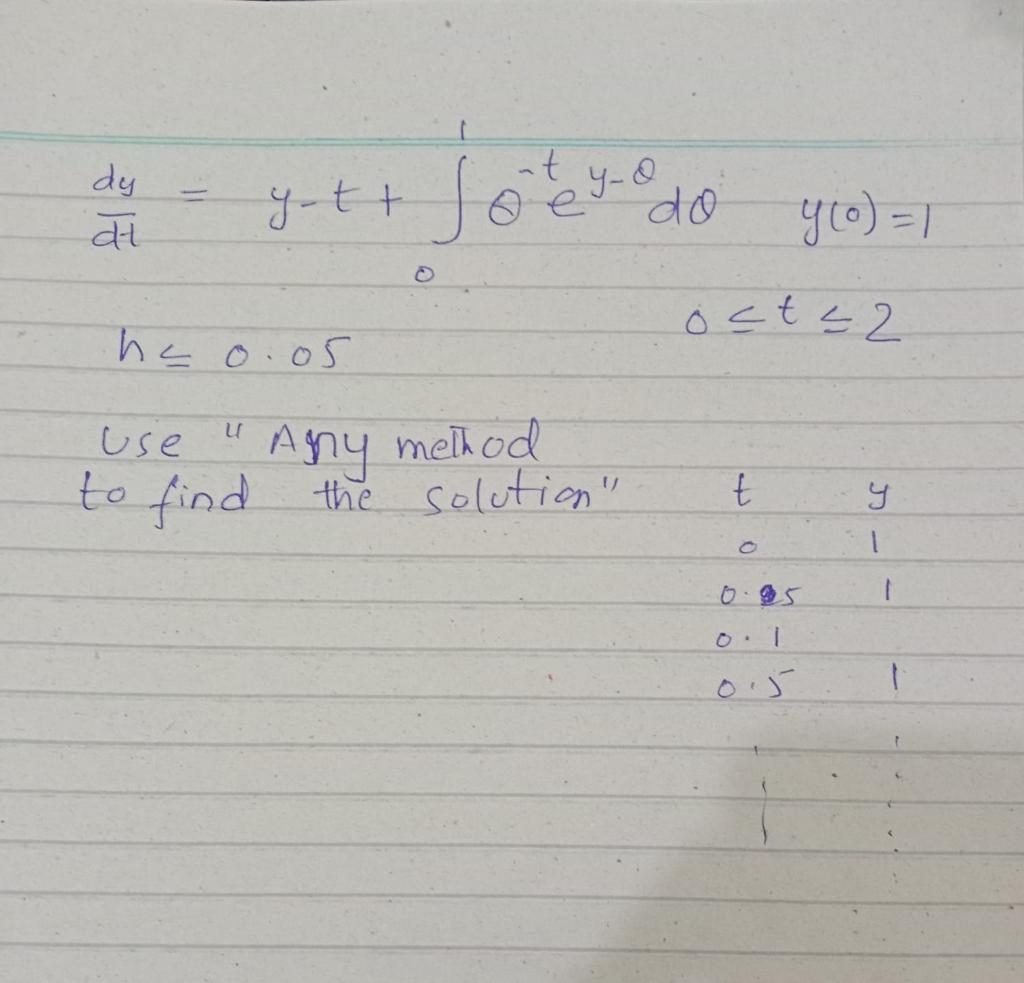 dy/dt = y-t + ∫₀¹ θ^-t e^y-θ dθ y(0) = 1
0 ≤ t ≤ 2
h ≤ 0.05
Use "Any method
to find the solution" t y
0 1
0.05 1
0.1
0.5 1